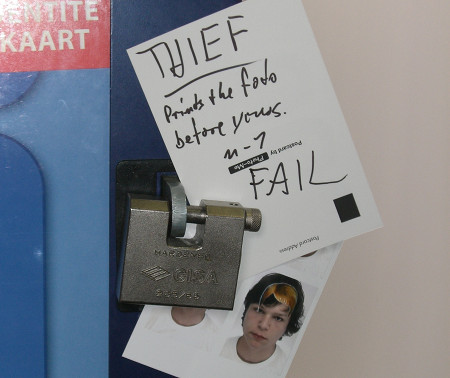 ENTITE
KAART
THIEF
Prints the foto
before yours.
n-1
FAIL
Postcard by Photo-Me
Postcard Address
HARDENED
CISA